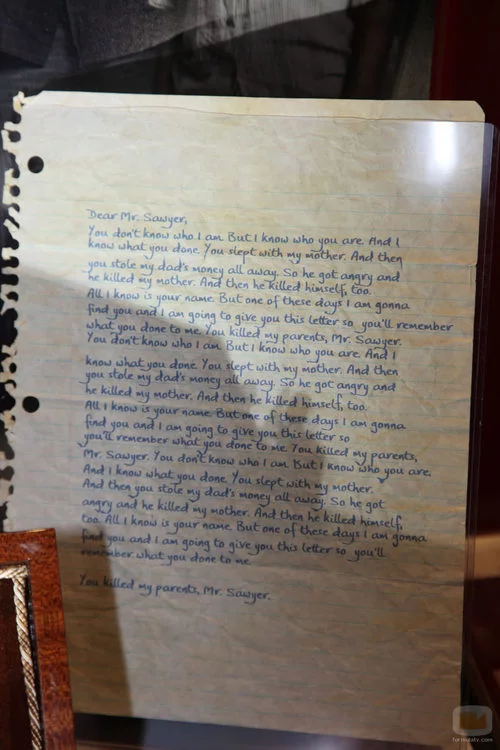 Dear Mr. Sawyer,
You don't know who I am. But I know who you are. And I
know what you done. You slept with my mother. And then
you stole my dad's money all away. So he got angry and
he killed my mother. And then he killed himself, too.
All I know is your name. But one of these days I am gonna
find you and I am going to give you this letter so you'll remember
what you done to me. You killed my parents, Mr. Sawyer.
You don't know who I am. But I know who you are. And I
know what you done. You slept with my mother. And then
you stole my dad's money all away. So he got angry and
he killed my mother. And then he killed himself, too.
All I know is your name. But one of these days I am gonna
find you and I am going to give you this letter so
you'll remember what you done to me. You killed my parents,
Mr. Sawyer. You don't know who I am. But I know who you are.
And I know what you done. You slept with my mother.
And then you stole my dad's money all away. So he got
angry and he killed my mother. And then he killed himself,
too. All I know is your name. But one of these days I am gonna
find you and I am going to give you this letter so you'll
remember what you done to me.
You killed my parents, Mr. Sawyer.
formulatv.com